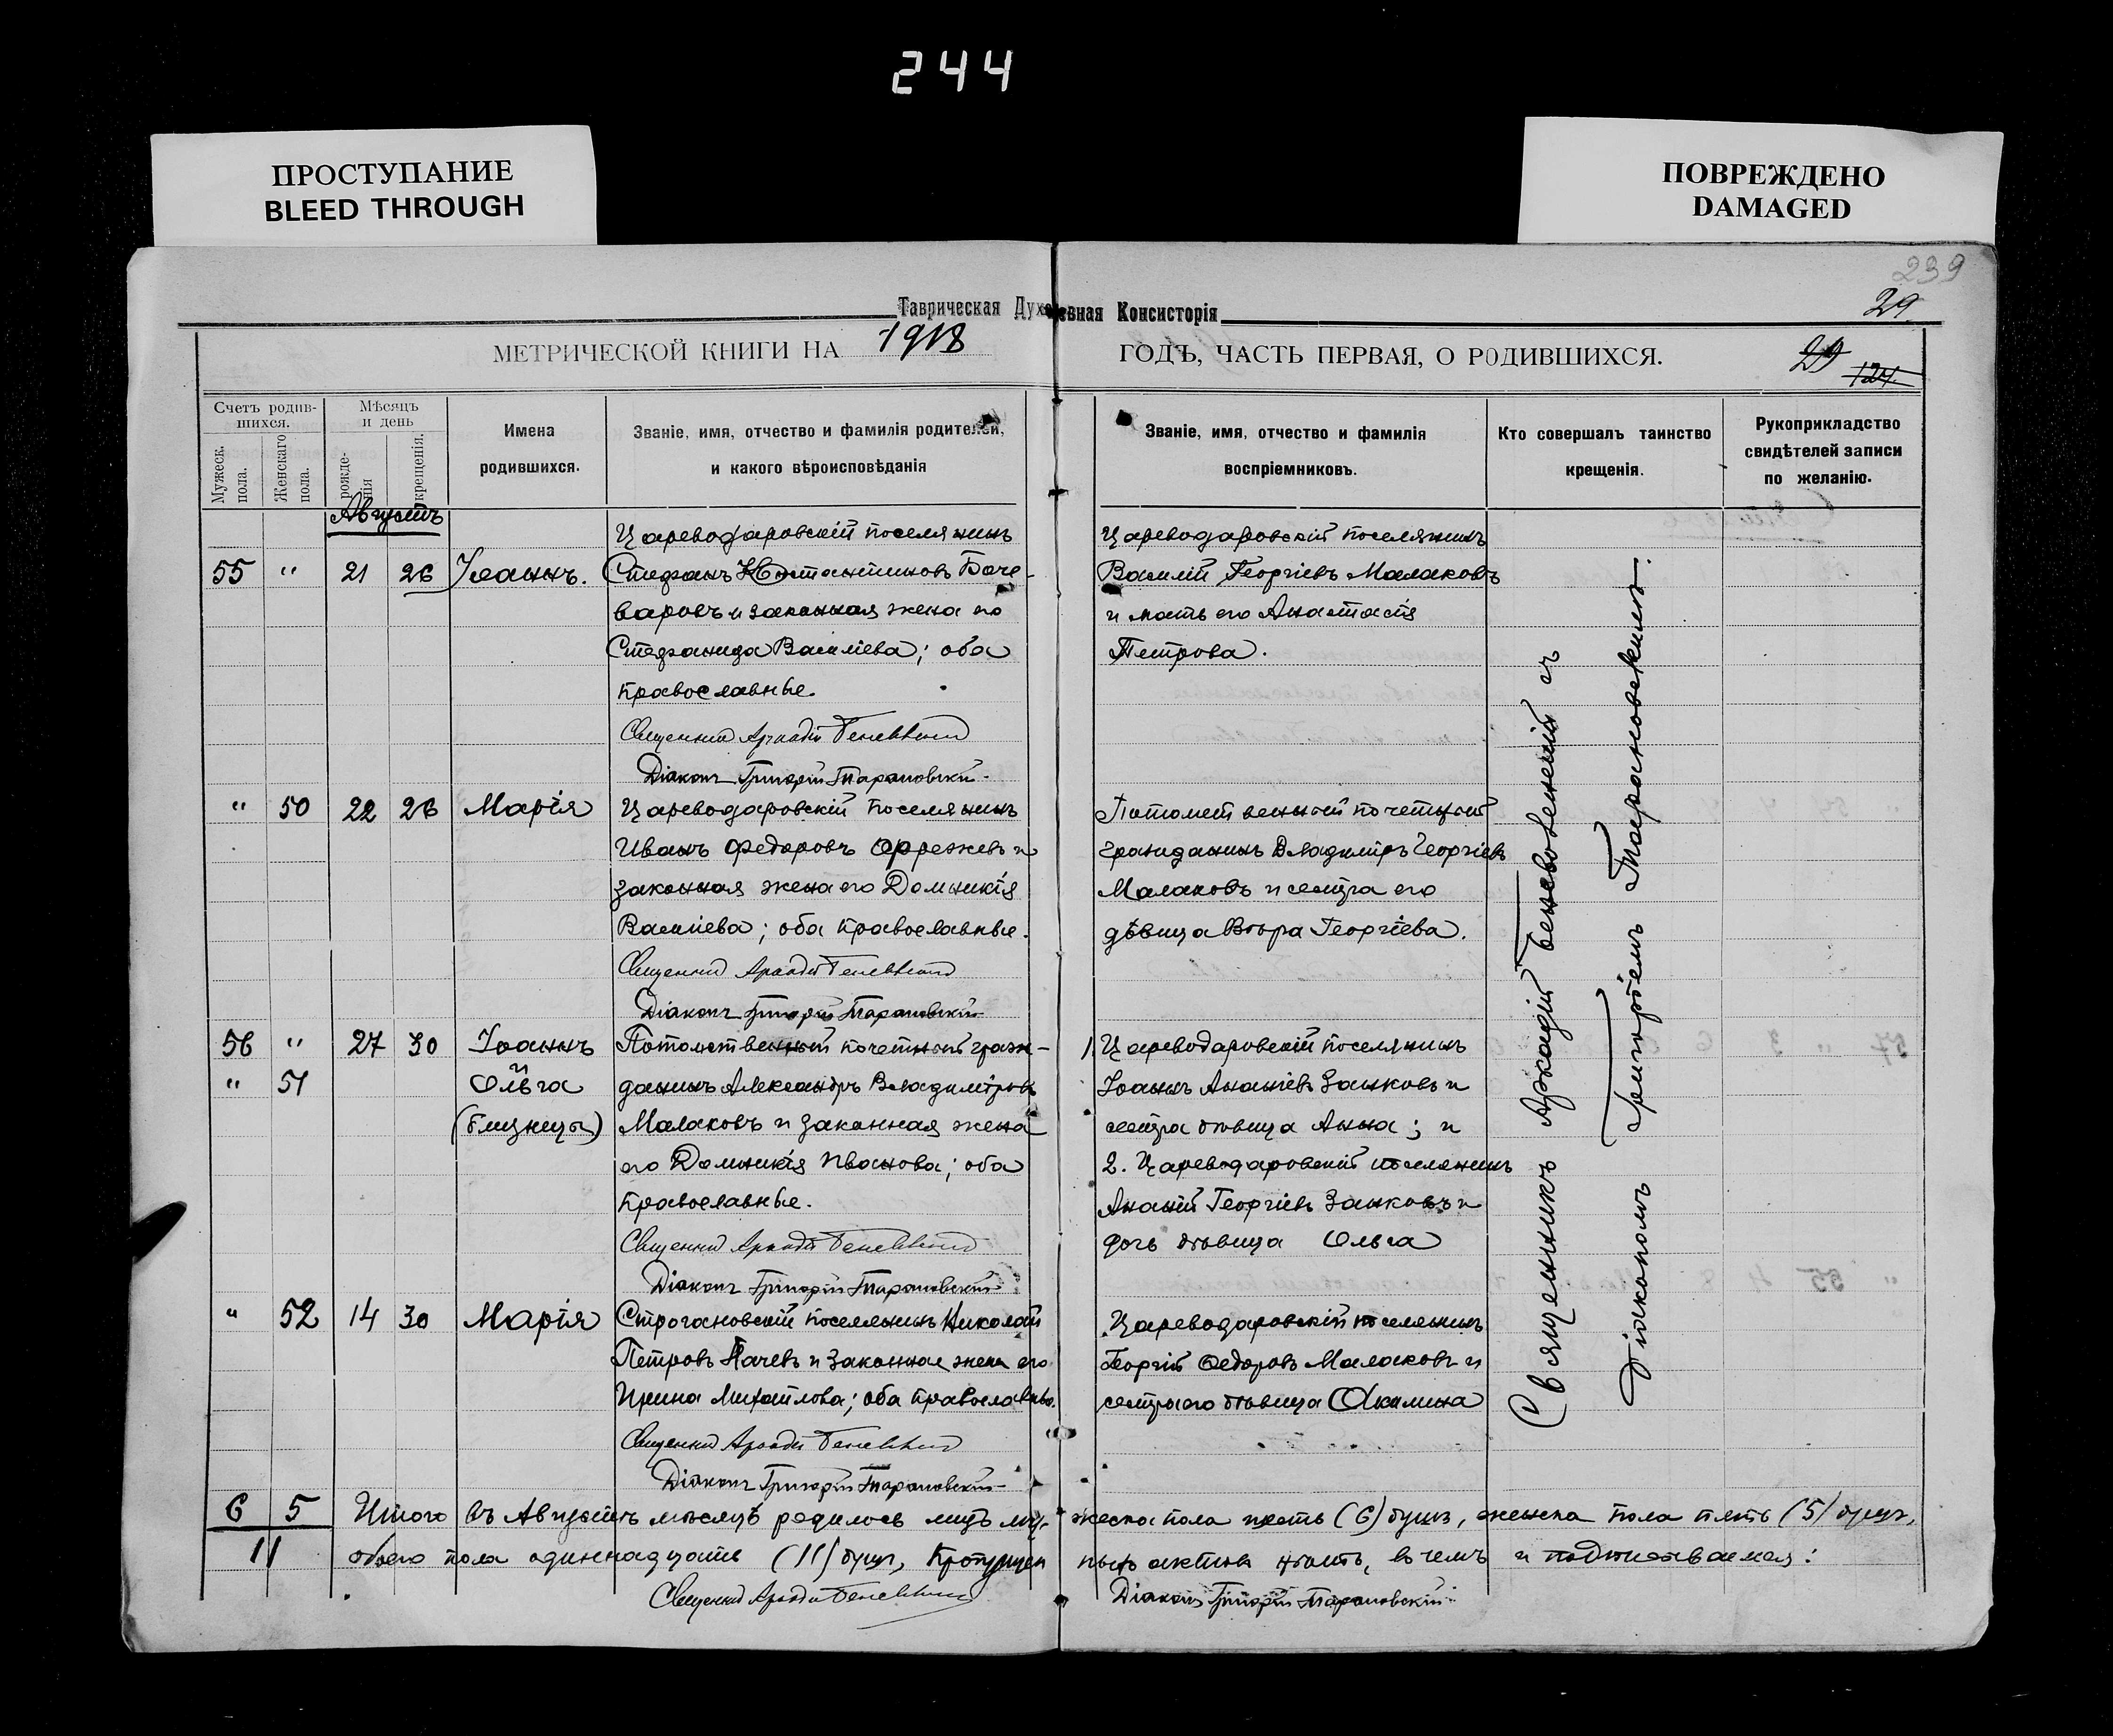 244
ПРОСТУПАНИЕ
BLEED THROUGH
ПОВРЕЖДЕНО
DAMAGED
239
29
Таврическая Духовная Консисторія
МЕТРИЧЕСКОЙ КНИГИ НА 1918 ГОДЪ, ЧАСТЬ ПЕРВАЯ, О РОДИВШИХСЯ.
29 124.
Счетъ родив-
шихся.
Мужеск. пола.
Женскаго пола.
Мѣсяцъ
и день
рожде-
нія
крещенія.
Имена
родившихся.
Званіе, имя, отчество и фамилія родителей,
и какого вѣроисповѣданія
Званіе, имя, отчество и фамилія
воспріемниковъ.
Кто совершалъ таинство
крещенія.
Рукоприкладство
свидѣтелей записи
по желанію.
Августъ
55 " 21 26 Іоаннъ.
Цареводаровскій поселянинъ
Стефанъ Константиновъ Боче-
варовъ и законная жена его
Стефанида Василіева; оба
православные.
Священникъ Аркадій
Діаконъ Григорій Тарановскій
Цареводаровскій поселянинъ
Василій Георгіевъ Малаковъ
и мать его Анастасія
Петрова.
" 50 22 26 Марія
Цареводаровскій поселянинъ
Иванъ Федоровъ и
законная жена его Домникія
Василіева; оба православные.
Священникъ Аркадій
Діаконъ Григорій Тарановскій
Потомственный почетный
гражданинъ Владиміръ Георгіевъ
Малаковъ и сестра его
дѣвица Вѣра Георгіева.
56 " 27 30 Іоаннъ
и
" 51 Ольга
(близнецы)
Потомственный почетный граж-
данинъ Александръ Владиміровъ
Малаковъ и законная жена
его Домникія Иванова; оба
православные.
Священникъ Аркадій
Діаконъ Григорій Тарановскій
1. Цареводаровскій поселянинъ
Іоаннъ Ананіевъ Занковъ и
сестра дѣвица Анна; и
2. Цареводаровскій поселянинъ
Ананій Георгіевъ Занковъ и
дочь дѣвица Ольга
" 52 14 30 Марія
Строгановскій поселянинъ Николай
Петровъ и законная жена его
Ирина Михайлова; оба православные.
Священникъ Аркадій
Діаконъ Григорій Тарановскій
Цареводаровскій поселянинъ
Георгій Федоровъ Малаковъ и
сестра его дѣвица Акилина
Священникъ Аркадій съ
Діакономъ Григоріемъ Тарановскимъ.
6 5 Итого въ Августѣ мѣсяцѣ родилось мужеска пола шесть (6) душъ, женска пола пять (5) душъ,
11 обоего пола одиннадцать (11) душъ, пропущенныхъ актовъ нѣтъ, въ чемъ и подписываемся:
Священникъ Аркадій
Діаконъ Григорій Тарановскій